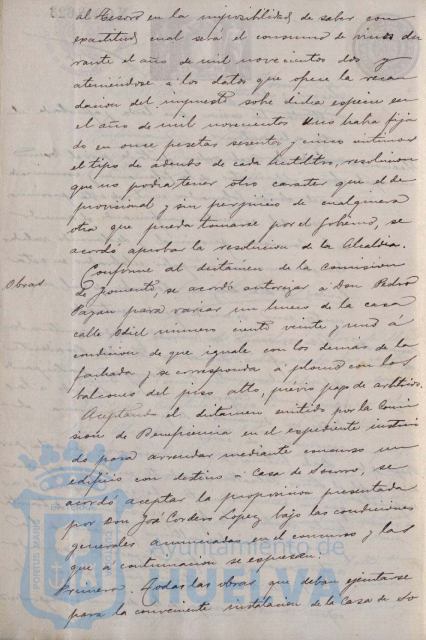 al Tesoro en la imposibilidad de saber con
exactitud cual será el consumo de vinos du
rante el año de mil novecientos dos y
ateniéndose á los datos que ofrece la recau
dacion del impuesto sobre dicha especie en
el año de mil novecientos uno habia fija
do en once pesetas sesenta y cinco centimos
el tipo de adeudo de cada hectólitro, resolucion
que no podia tener otro caracter que el de
provisional y sin perjuicio de cualquiera
otra que pueda tomarse por el gobierno, se
acordó aprobar la resolucion de la Alcaldia.
Obras
Conforme al dictamen de la Comision
de Fomento, se acordó autorizar á Don Pedro
Pazan para variar un hueco de la casa
calle Odiel número ciento veinte y uno á
condicion de que iguale con los demás de la
fachada y se corresponda á plomo con los
balcones del piso alto, previo pago de arbitrios.
Aceptando el dictamen emitido por la Comi
sion de Beneficencia en el expediente instrui
do para arrendar mediante concurso un
edificio con destino á Casa de Socorro, se
acordó aceptar la proposicion presentada
por Don José Cordero Lopez bajo las condiciones
generales anunciadas en el concurso y las
que á continuacion se expresan:
Primera. Todas las obras que deban ejecutarse
para la conveniente instalacion de la Casa de So
PORTUS MARIS
Ayuntamiento de
HUELVA